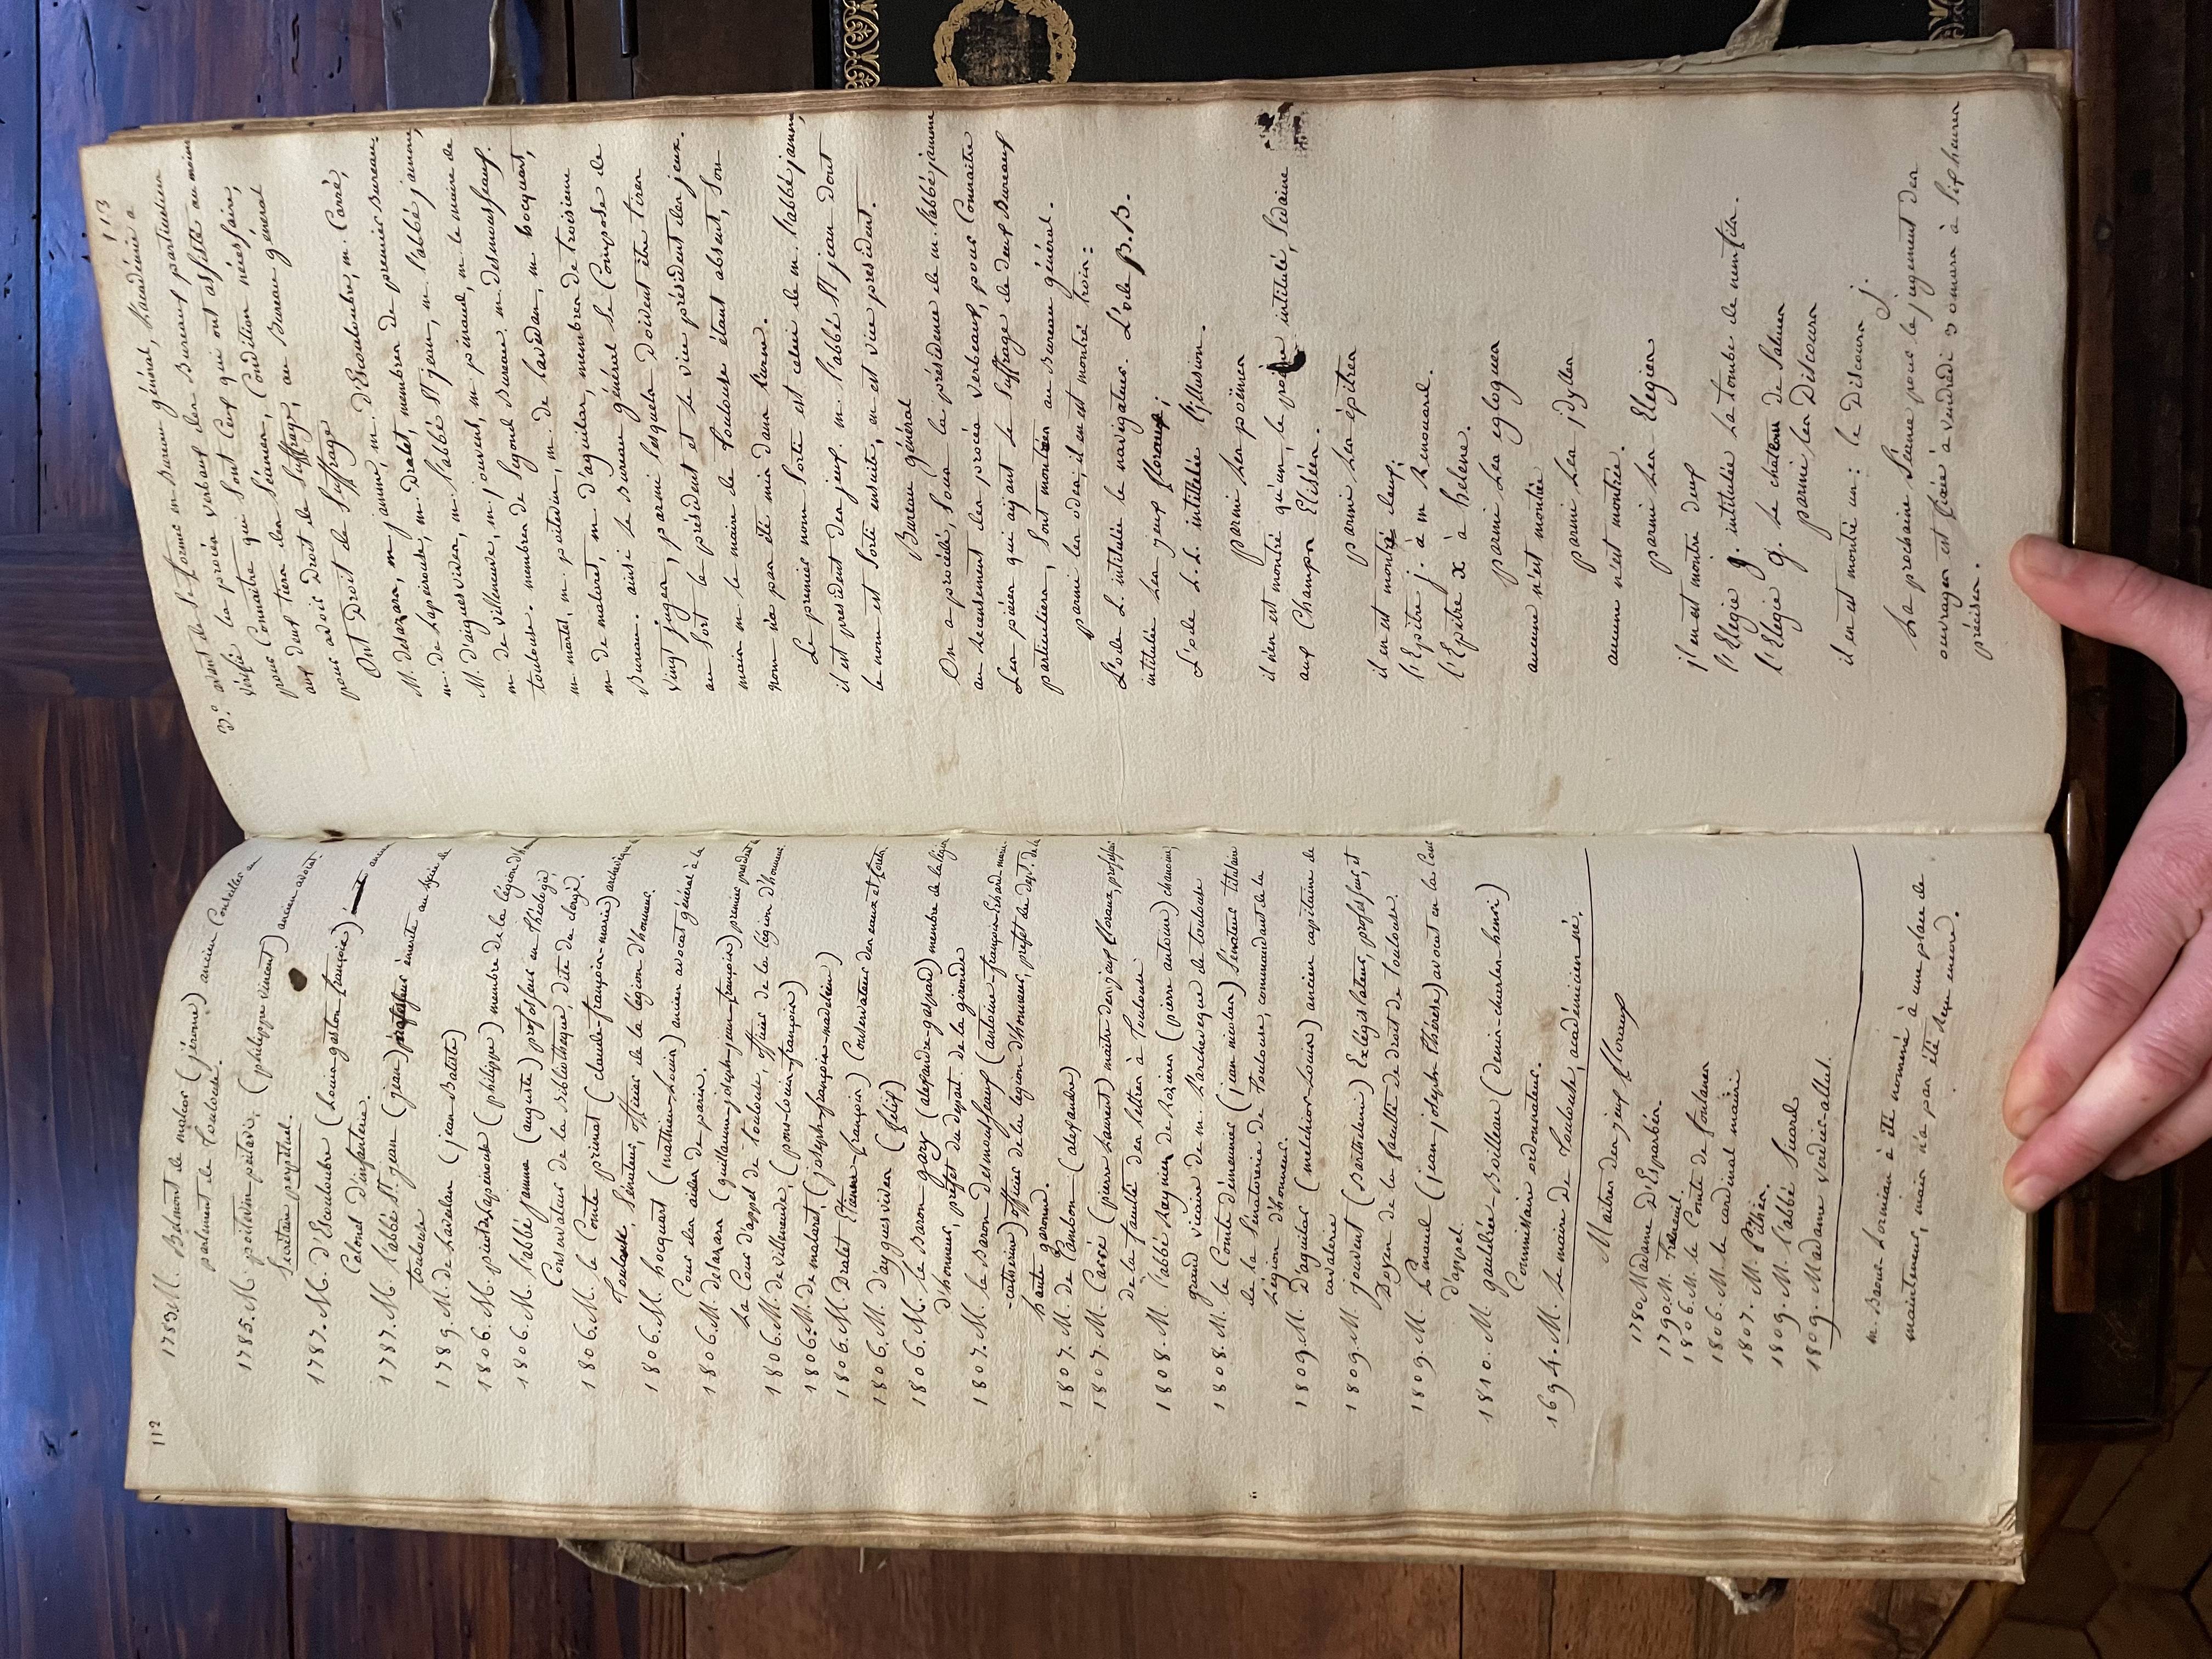 112
1783. M. Belmont de malcor (jérome) ancien Conseiller au
parlement de Toulouse.
1785. M. poitevin-peitavi, (philippe vincent) ancien avocat.
Secrétaire perpétuel.
1787. M. d'Escouloubre (Louis-gaston-françois) ancien
Colonel d'infanterie.
1787. M. l'abbé St. jean (jean) professeur émérite au lycée de
toulouse
1789. M. de Lavedan (jean Batiste)
1806. M. picot Lapeirouse (philippe) membre de la légion d'h
1806. M. l'abbé jamme (auguste) professeur en théologie,
Conservateur de la Bibliotheque, dite du clergé.
1806. M. le Comte primat (claude-françois-marie) archevêque
Toulouse, Sénateur, officier de la légion d'honneur.
1806. M. hocquart (mathieu-Louis) ancien avocat général à la
Cour des aides de paris.
1806. M. desazars (guillaume-joseph-jean-françois) premier président
la Cour d'appel de toulouse, officier de la légion d'honneur.
1806. M. de Villeneuve, (pons-Louis-françois)
1806. M. de malaret, (joseph-françois-madelein)
1806. M. Dralet Etienne (françois) Conservateur des eaux et forêts.
1806. M. d'aygues vives (félix)
1806. M. le Baron gary (alexandre-gaspard) membre de la légion
d'honneur, préfet du départ. de la gironde
1807. M. le Baron desmousseaux (antoine-françois-Erhard-marie
-catherine) officier de la légion d'honneur, prefet du dept. de la
haute garonne.
1807. M. de Cambon (alexandre)
1807. M. Carré (pierre Laurent) maitre des jeux floraux, professeur
de la faculté des lettres à Toulouse
1808. M. l'abbé Laynien de Roziers (pierre antoine) chanoine,
grand vicaire de m. l'archeveque de toulouse
1808. M. le Comte d'émeunes (jean nicolas) Sénateur titulaire
de la Sénatorerie de Toulouse, commandant de la
Légion d'honneur.
1809. M. D'aguilar (melchior-Louis) ancien capitaine de
cavalerie
1809. M. jouvent (Barthelemi) Ex législateur, professeur, et
Doyen de la faculté de droit de Toulouse.
1809. M. (jean joseph thérèse) avocat en la Cour
d'appel.
1810. M. gauldrée-Boilleau (denis-charles-henri)
Commissaire ordonnateur.
1694. M. le maire de Toulouse, académicien né.
Maitres des jeux floraux
1780. Madame D'Esparbès.
1790. M. Treneuil.
1806. M. le Comte de fontanes
1806. M. le cardinal mauri
1807. M. Pithier.
1809. M. l'abbé Sicard
1809. Madame Verdier-allut.
m. Baour Lormian à été nommé à une place de
mainteneur, mais n'a pas été reçu encore.
113
3.º avant de Se former en Bureau général, l'académie a
vérifié les procès verbaux des Bureaux particuliers
pour Connaitre qui Sont Ceux qui ont assisté au moins
aux deux tiers des Séances, Condition nécessaire,
pour avoir Droit de Suffrage, au Bureau général
Ont Droit de Suffrage
M. desazars, m. jamme, m. D'Escouloubre, m. Carré,
m. de Lapeirouse, m. Dralet, membres du premier Bureau.
M. d'aiguesvives, m. l'abbé St. jean, m. l'abbé jamme,
m. de Villeneuve, m. jouvent, m. pinaud, m. le maire de
toulouse. membres du Segond Bureau. m. desmousseaux.
m. martel, m. poitevin, m. de Lavedan, m. hocquart,
m. de malaret, m. d'aguilar, membres du troisieme
Bureau. ainsi le Bureau général Se Compose de
Vingt juges, parmi lesquels doivent être tirés
au Sort le président et le vice président des jeux.
mais m. le maire de toulouse étant absent, Son
nom n'a pas été mis dans l'urne.
Le premier nom Sorti est celui de m. l'abbé jamme,
il est president des jeux. m. l'abbé St. jean dont
le nom est Sorti ensuite, en est vice president.
Bureau général
On a procédé, Sous la présidence de m. l'abbé jamme
au recensement des procès verbeaux, pour Connaitre
Les pièces qui ayant le Suffrage de deux Bureaux
particuliers, Sont montées au Bureau général.
parmi les odes, il en est monté trois:
L'ode L. intitulée le navigateur. L'ode B.B.
intitulée Les jeux floraux;
L'ode L.L. intitulée l'illusion.
parmi Les poëmes
il n'en est monté qu'un, le poëme intitulé, Sedaine
aux Champs Elisées.
parmi Les épitres
il en est monté deux;
l'Epitre j. à m. Renouard.
l'Epitre x à helene.
parmi Les eglogues
aucune n'est montée
parmi Les jdylles
aucune n'est montée.
parmi Les Elegies
il en est monté deux
l'Elegie g. intitulée La tombe de
l'Elegie g. le chateau de Saluces
parmi les Discours
il en est monté un: le Discours j.
La prochaine Séance pour le jugement des
ouvrages est fixée à vendredi 30 mars à Six heures
précises.